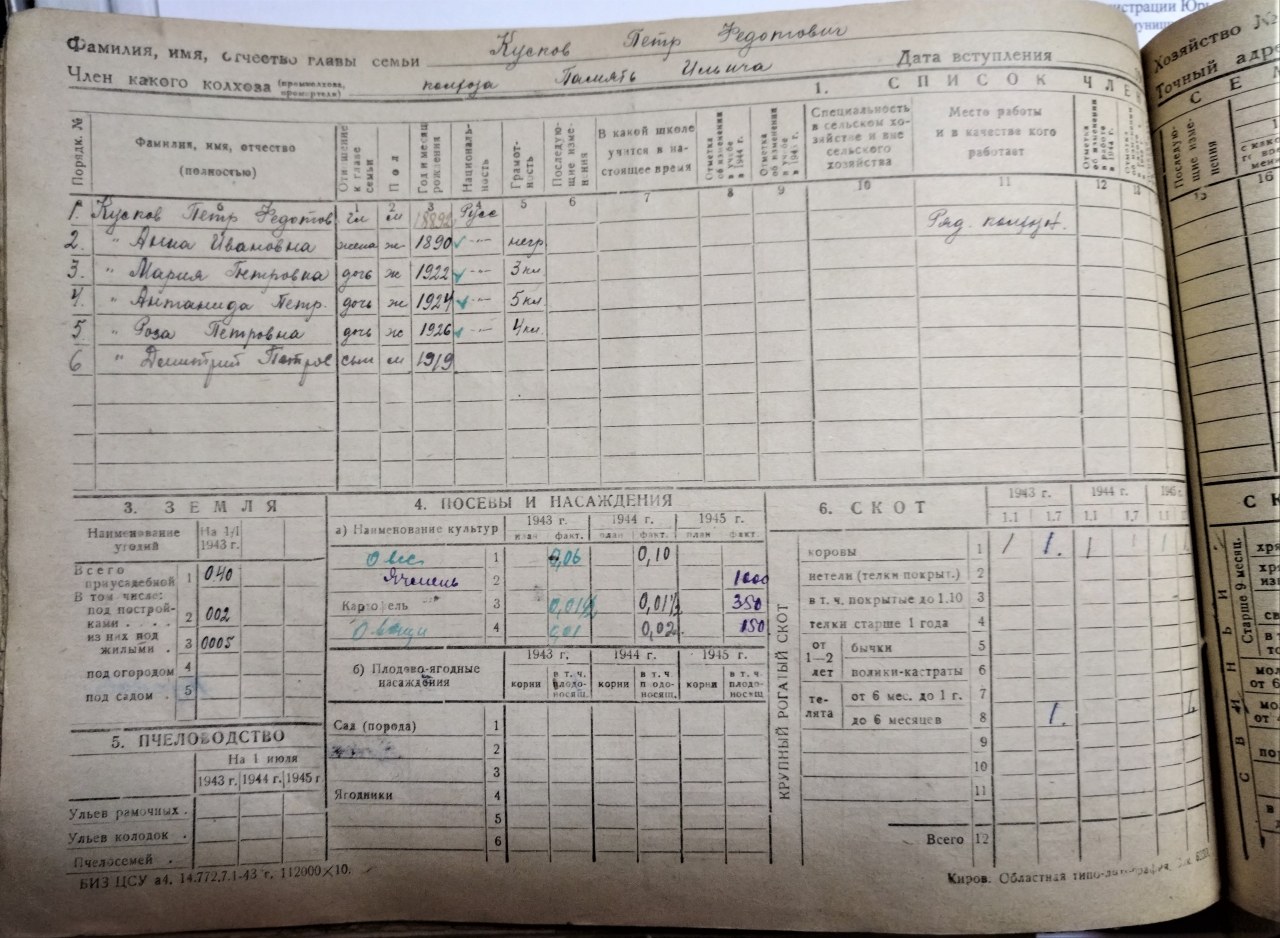 нистрации Юрь
муници
Фамилия, имя, отчество главы семьи Кусков Петр Федотович
Дата вступления
Член какого колхоза (промколхоза, промартели) колхоза Память Ильича
1. СПИСОК ЧЛЕН
Порядк. №
Фамилия, имя, отчество (полностью)
Отношение к главе семьи
Пол
Год и месяц рождения
Националь-ность
Грамот-ность
Последую-щие изме-нения
В какой школе учится в на-стоящее время
Отметка об изменении в учебе в 1944 г.
Отметка об изменении в учебе в 194 г.
Специальность в сельском хо-зяйстве и вне сельского хозяйства
Место работы и в качестве кого работает
Отметка об изменении в работе в 1944 г.
1 2 3 4 5 6 7 8 9 10 11 12 13
1. Кусков Петр Федотов гл м Русс Ряд. колхоз.
2. " Анна Ивановна жена ж 1890 -"- негр
3. " Мария Петровна дочь ж 1922 -"- 3 кл
4. " Антанида Петр. дочь ж 1924 -"- 5 кл
5 " Роза Петровна дочь ж 1926 -"- 4 кл.
6 " Демитрий Петров сын м 1919
3. ЗЕМЛЯ
Наименование угодий
На 1/I 1943 г.
Всего приусадебной 1 0.40
В том числе:
под построй-ками . . . . 2 002
из них под жилыми . 3 0005
под огородом 4
под садом . 5
5. ПЧЕЛОВОДСТВО
На 1 июля
1943 г. 1944 г. 1945 г
Ульев рамочных .
Ульев колодок .
Пчелосемей .
4. ПОСЕВЫ И НАСАЖДЕНИЯ
а) Наименование культур
1943 г. 1944 г. 1945 г.
план факт. план факт. план факт
Овес 1 0,06 0,10
Ячмень 2 1000
Картофель 3 0,01½ 0,01½ 350
Овощи 4 001 0,02 150
б) Плодово-ягодные насаждения
1943 г. 1944 г. 1945 г.
корни в т. ч. плодо-носящ. корни в т. ч плодо-носящ. корни в т. ч. плодо-носящ
Сад (порода) 1
2
3
Ягодники 4
5
6
6. СКОТ
1943 г. 1944 г. 1945 г.
1.1 1.7 1.1 1.7 1.1
КРУПНЫЙ РОГАТЫЙ СКОТ
коровы 1 1 1. 1 1 1
нетели (телки покрыт.) 2
в т. ч. покрытые до 1.10 3
телки старше 1 года 4
от 1—2 лет
бычки 5
волики-кастраты 6
те-лята
от 6 мес. до 1 г. 7
до 6 месяцев 8 1. 1
9
10
11
Всего 12
БИЗ ЦСУ а4. 14.772.7.1-43 г. 112000×10.
Киров. Областная типо-литография,
Хозяйство №
Точный адре
СЕМ
Последую-щие изме-нения
15
16
СК
СВИНЬИ
Старше 9 месяц.
хря